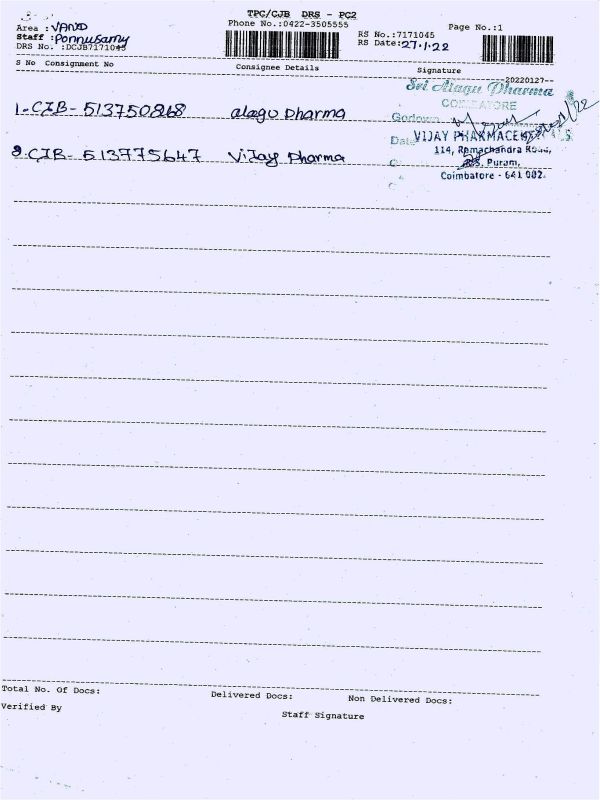 TPC/CJB DRS - PC2
Phone No.:0422-3505555
Page No.:1
Area : VAN
Staff : Ponnusamy
DRS No. :DCJB7171045
RS No.:7171045
RS Date:27.1.22
S No Consignment No Consignee Details Signature
20220127--
Sri Alagu Dharma
COIMBATORE
Godown
1- CJB- 513750868 alagu Dharma
Date
VIJAY
114, Ramachandra Road,
2 CJB- 513775647 Vijay Dharma
R.S. Puram,
Coimbatore - 641 002.
Total No. Of Docs: Delivered Docs: Non Delivered Docs:
Verified By Staff Signature